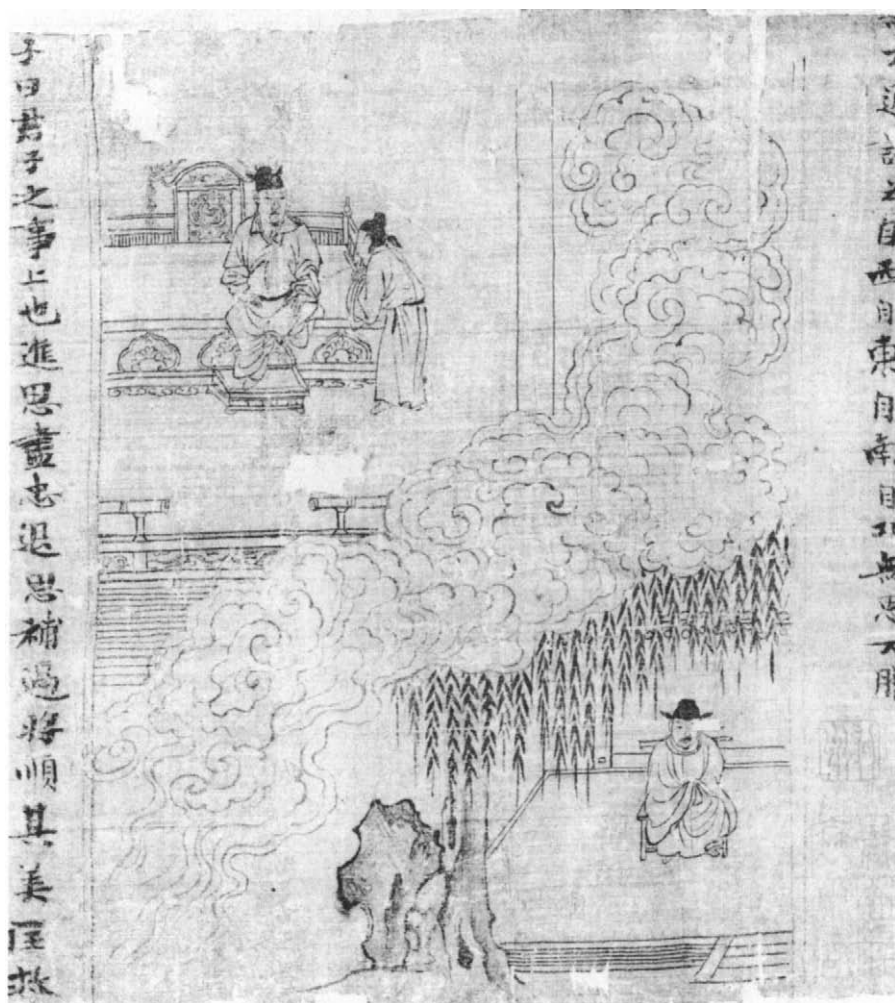 不通詩云自西自東自南自北無思不服
子曰君子之事上也進思盡忠退思補過將順其美匡救